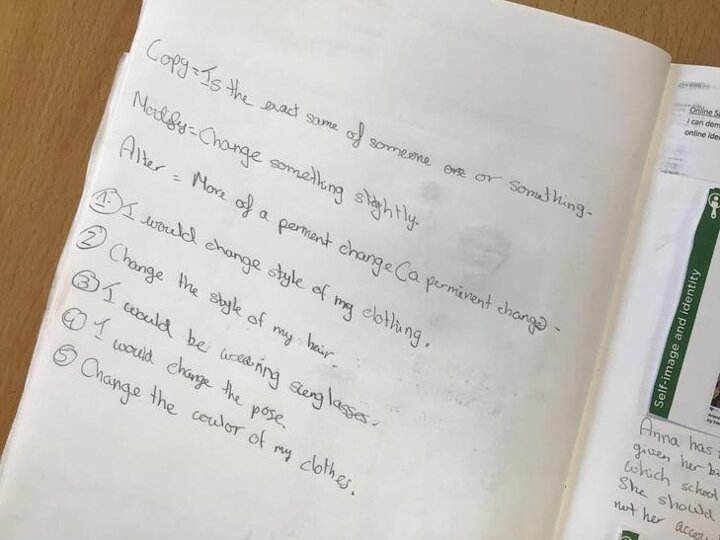 Copy = Is the exact same of someone or something.
Modify = Change something slightly.
Alter = More of a perment change (a perminent change).
1. I would change style of my clothing.
2 Change the style of my hair.
3 I would be wearing sunglasses.
4 I would change the pose.
5 Change the coulor of my clothes.
Online S
I can dem
online ide
Self-image and identity
Anna has
given her bi
which school
She should
not her acco